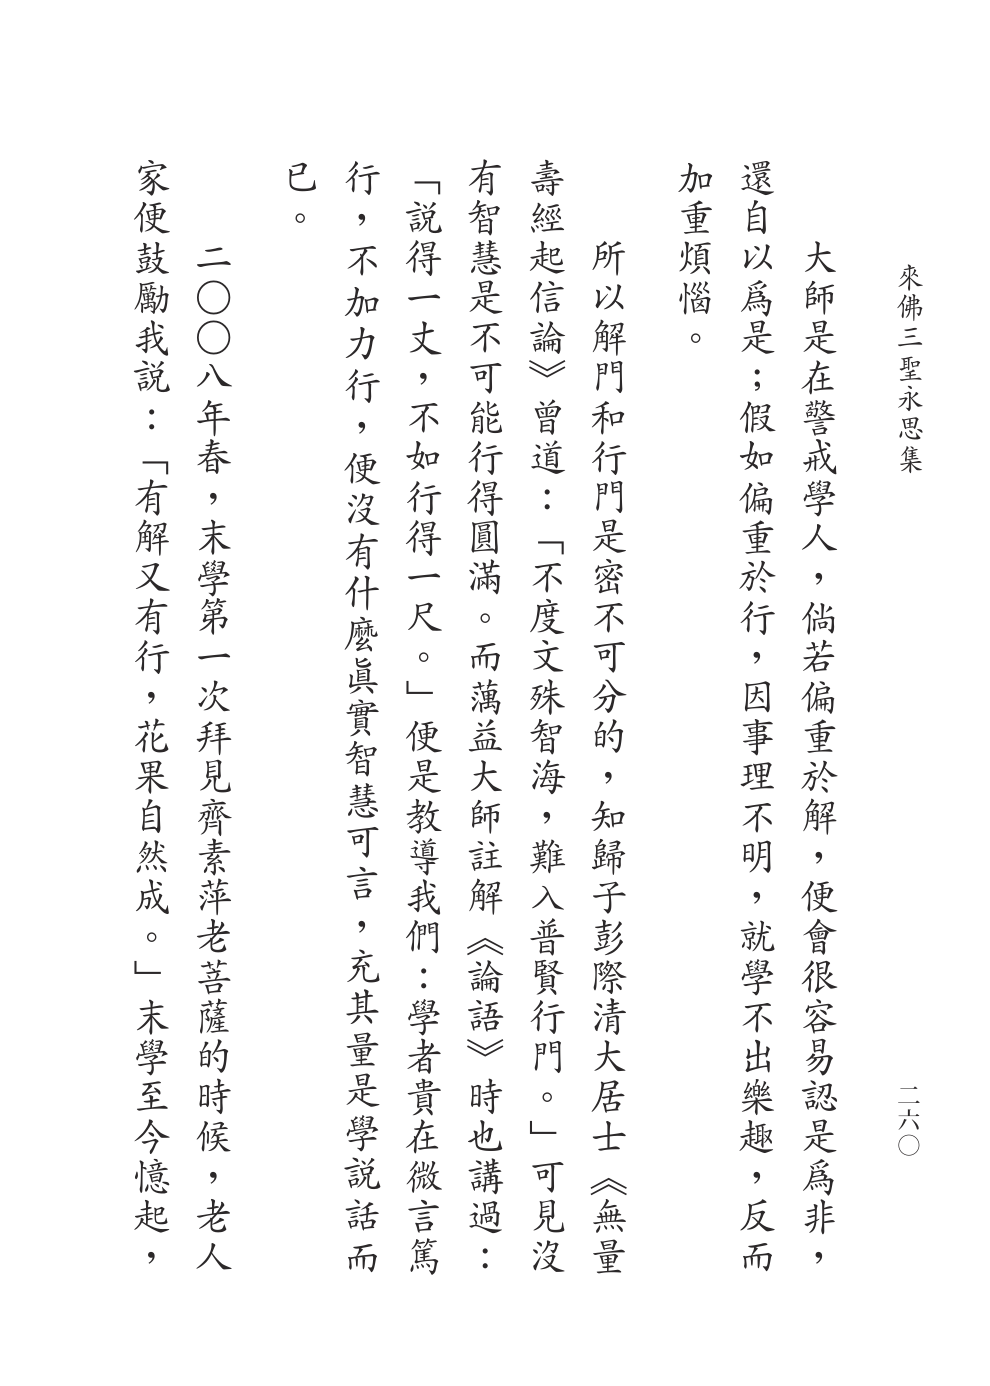 來佛三聖永思集
二六〇
大師是在警戒學人，倘若偏重於解，便會很容易認是爲非，
還自以爲是；假如偏重於行，因事理不明，就學不出樂趣，反而
加重煩惱。
所以解門和行門是密不可分的，知歸子彭際清大居士《無量
壽經起信論》曾道：「不度文殊智海，難入普賢行門。」可見沒
有智慧是不可能行得圓滿。而蕅益大師註解《論語》時也講過：
「說得一丈，不如行得一尺。」便是教導我們：學者貴在微言篤
行，不加力行，便沒有什麼眞實智慧可言，充其量是學說話而
已。
二〇〇八年春，末學第一次拜見齊素萍老菩薩的時候，老人
家便鼓勵我説：「有解又有行，花果自然成。」末學至今憶起，